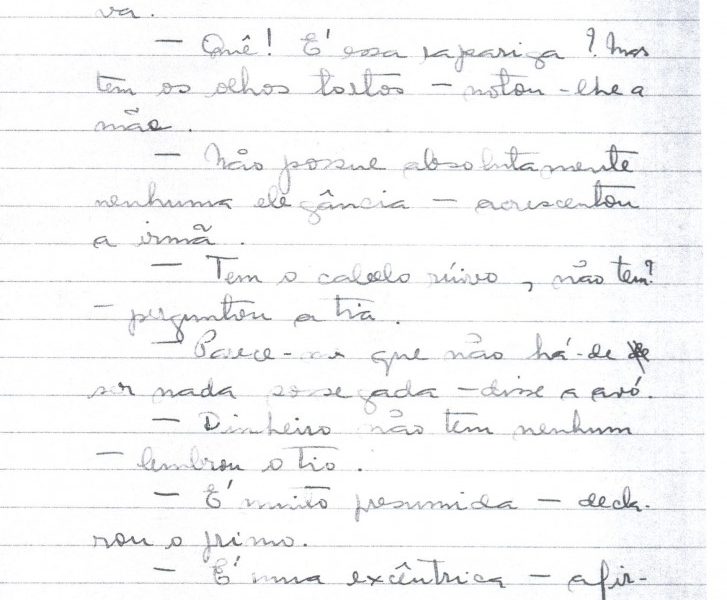 va.
— Quê! E' essa rapariga? Mas
tem os olhos tortos — notou-lhe a
mãe.
— Não possue absolutamente
nenhuma elegância — acrescentou
a irmã.
— Tem o cabelo rúivo, não tem?
— perguntou a tia.
— Parece-me que não há-de
ser nada sossegada — disse a avó.
— Dinheiro não tem nenhum
— lembrou o tio.
— E' muito presumida — decla-
rou o primo.
— E' uma excêntrica — afir-